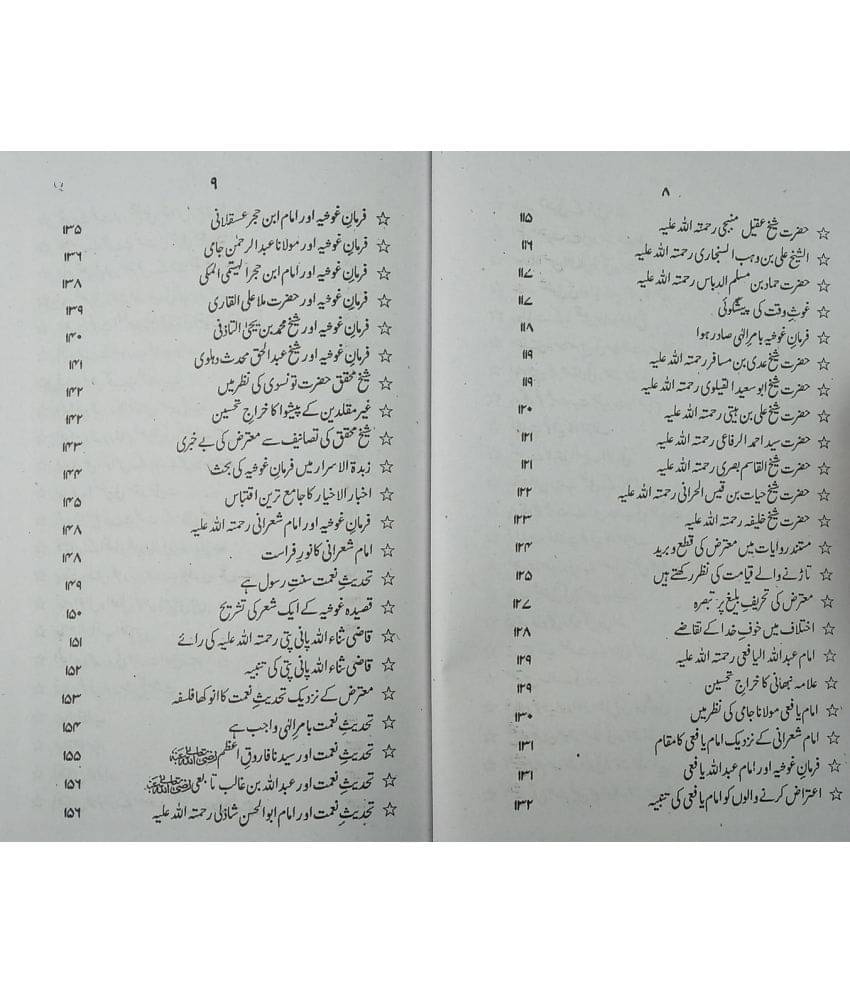 ۸
☆ حضرت شیخ عقیل منبجی رحمتہ اللہ علیہ ۱۱۵
☆ الشیخ علی بن وہب السنجاری رحمتہ اللہ علیہ ۱۱۶
☆ حضرت حماد بن مسلم الدباس رحمتہ اللہ علیہ ۱۱۷
☆ غوثِ وقت کی پیشگوئی ۱۱۷
☆ فرمانِ غوثیہ بامرِ الٰہی صادر ہوا ۱۱۸
☆ حضرت شیخ عدی بن مسافر رحمتہ اللہ علیہ ۱۱۹
☆ حضرت شیخ ابو سعید القیلوی رحمتہ اللہ علیہ ۱۱۹
☆ حضرت شیخ علی بن ہیتی رحمتہ اللہ علیہ ۱۲۰
☆ حضرت سید احمد الرفاعی رحمتہ اللہ علیہ ۱۲۱
☆ حضرت شیخ القاسم بصری رحمتہ اللہ علیہ ۱۲۱
☆ حضرت شیخ حیات بن قیس الحرانی رحمتہ اللہ علیہ ۱۲۲
☆ حضرت شیخ خلیفہ رحمتہ اللہ علیہ ۱۲۳
☆ مستند روایات میں معترض کی قطع و برید ۱۲۴
☆ تاڑنے والے قیامت کی نظر رکھتے ہیں ۱۲۵
☆ معترض کی تحریفِ بلیغ پر تبصرہ ۱۲۷
☆ اختلاف میں خوفِ خدا کے تقاضے ۱۲۸
☆ امام عبداللہ الیافعی رحمتہ اللہ علیہ ۱۲۹
☆ علامہ نبھانی کا خراجِ تحسین ۱۲۹
☆ امام یافعی مولانا جامی کی نظر میں ۱۳۰
☆ امام شعرانی کے نزدیک امام یافعی کا مقام ۱۳۱
☆ فرمانِ غوثیہ اور امام عبداللہ یافعی ۱۳۱
☆ اعتراض کرنے والوں کو امام یافعی کی تنبیہ ۱۳۲
۹
☆ فرمانِ غوثیہ اور امام ابن حجر عسقلانی ۱۳۵
☆ فرمانِ غوثیہ اور مولانا عبدالرحمٰن جامی ۱۳۶
☆ فرمانِ غوثیہ اور امام ابن حجر الہیتمی المکی ۱۳۸
☆ فرمانِ غوثیہ اور حضرت ملا علی القاری ۱۳۹
☆ فرمانِ غوثیہ اور شیخ محمد بن یحییٰ التاذفی ۱۴۰
☆ فرمانِ غوثیہ اور شیخ عبدالحق محدث دہلوی ۱۴۱
☆ شیخ محقق حضرت تونسوی کی نظر میں ۱۴۲
☆ غیر مقلدین کے پیشوا کا خراجِ تحسین ۱۴۲
☆ شیخ محقق کی تصانیف سے معترض کی بے خبری ۱۴۳
☆ زبدۃ الاسرار میں فرمانِ غوثیہ کی بحث ۱۴۴
☆ اخبار الاخیار کا جامع ترین اقتباس ۱۴۵
☆ فرمانِ غوثیہ اور امام شعرانی رحمتہ اللہ علیہ ۱۴۸
☆ امام شعرانی کا نورِ فراست ۱۴۸
☆ تحدیثِ نعمت سنتِ رسول ہے ۱۴۹
☆ قصیدہ غوثیہ کے ایک شعر کی تشریح ۱۵۰
☆ قاضی ثناء اللہ پانی پتی رحمتہ اللہ علیہ کی رائے ۱۵۱
☆ قاضی ثناء اللہ پانی پتی کی تنبیہ ۱۵۲
☆ معترض کے نزدیک تحدیثِ نعمت کا انوکھا فلسفہ ۱۵۳
☆ تحدیثِ نعمت بامرِ الٰہی واجب ہے ۱۵۴
☆ تحدیثِ نعمت اور سیدنا فاروقِ اعظم رضی اللہ عنہ ۱۵۵
☆ تحدیثِ نعمت اور عبداللہ بن غالب تابعی رضی اللہ عنہ ۱۵۶
☆ تحدیثِ نعمت اور امام ابوالحسن شاذلی رحمتہ اللہ علیہ ۱۵۶